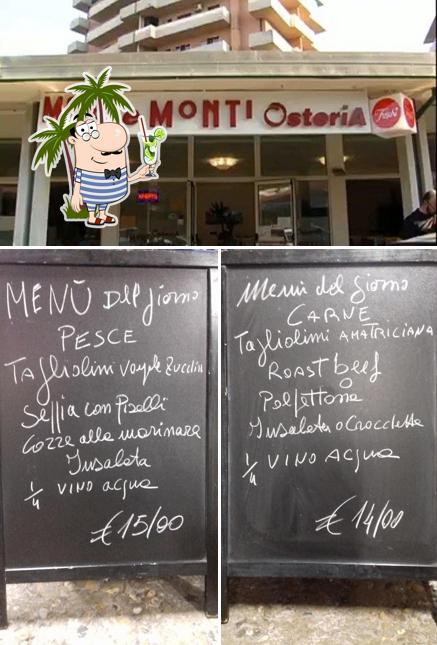 MONTI OsteriA
MENÙ del giorno
PESCE
Tagliolini vongole Zucchine
Seppia con Piselli
Cozze alla marinara
Insalata
1/4 VINO acqua
€ 15/00
Menù del giorno
CARNE
Tagliolini AMATRICIANA
ROAST beef
O
Polpettone
Insalata o Crocchette
1/4 VINO Acqua
€ 14/00